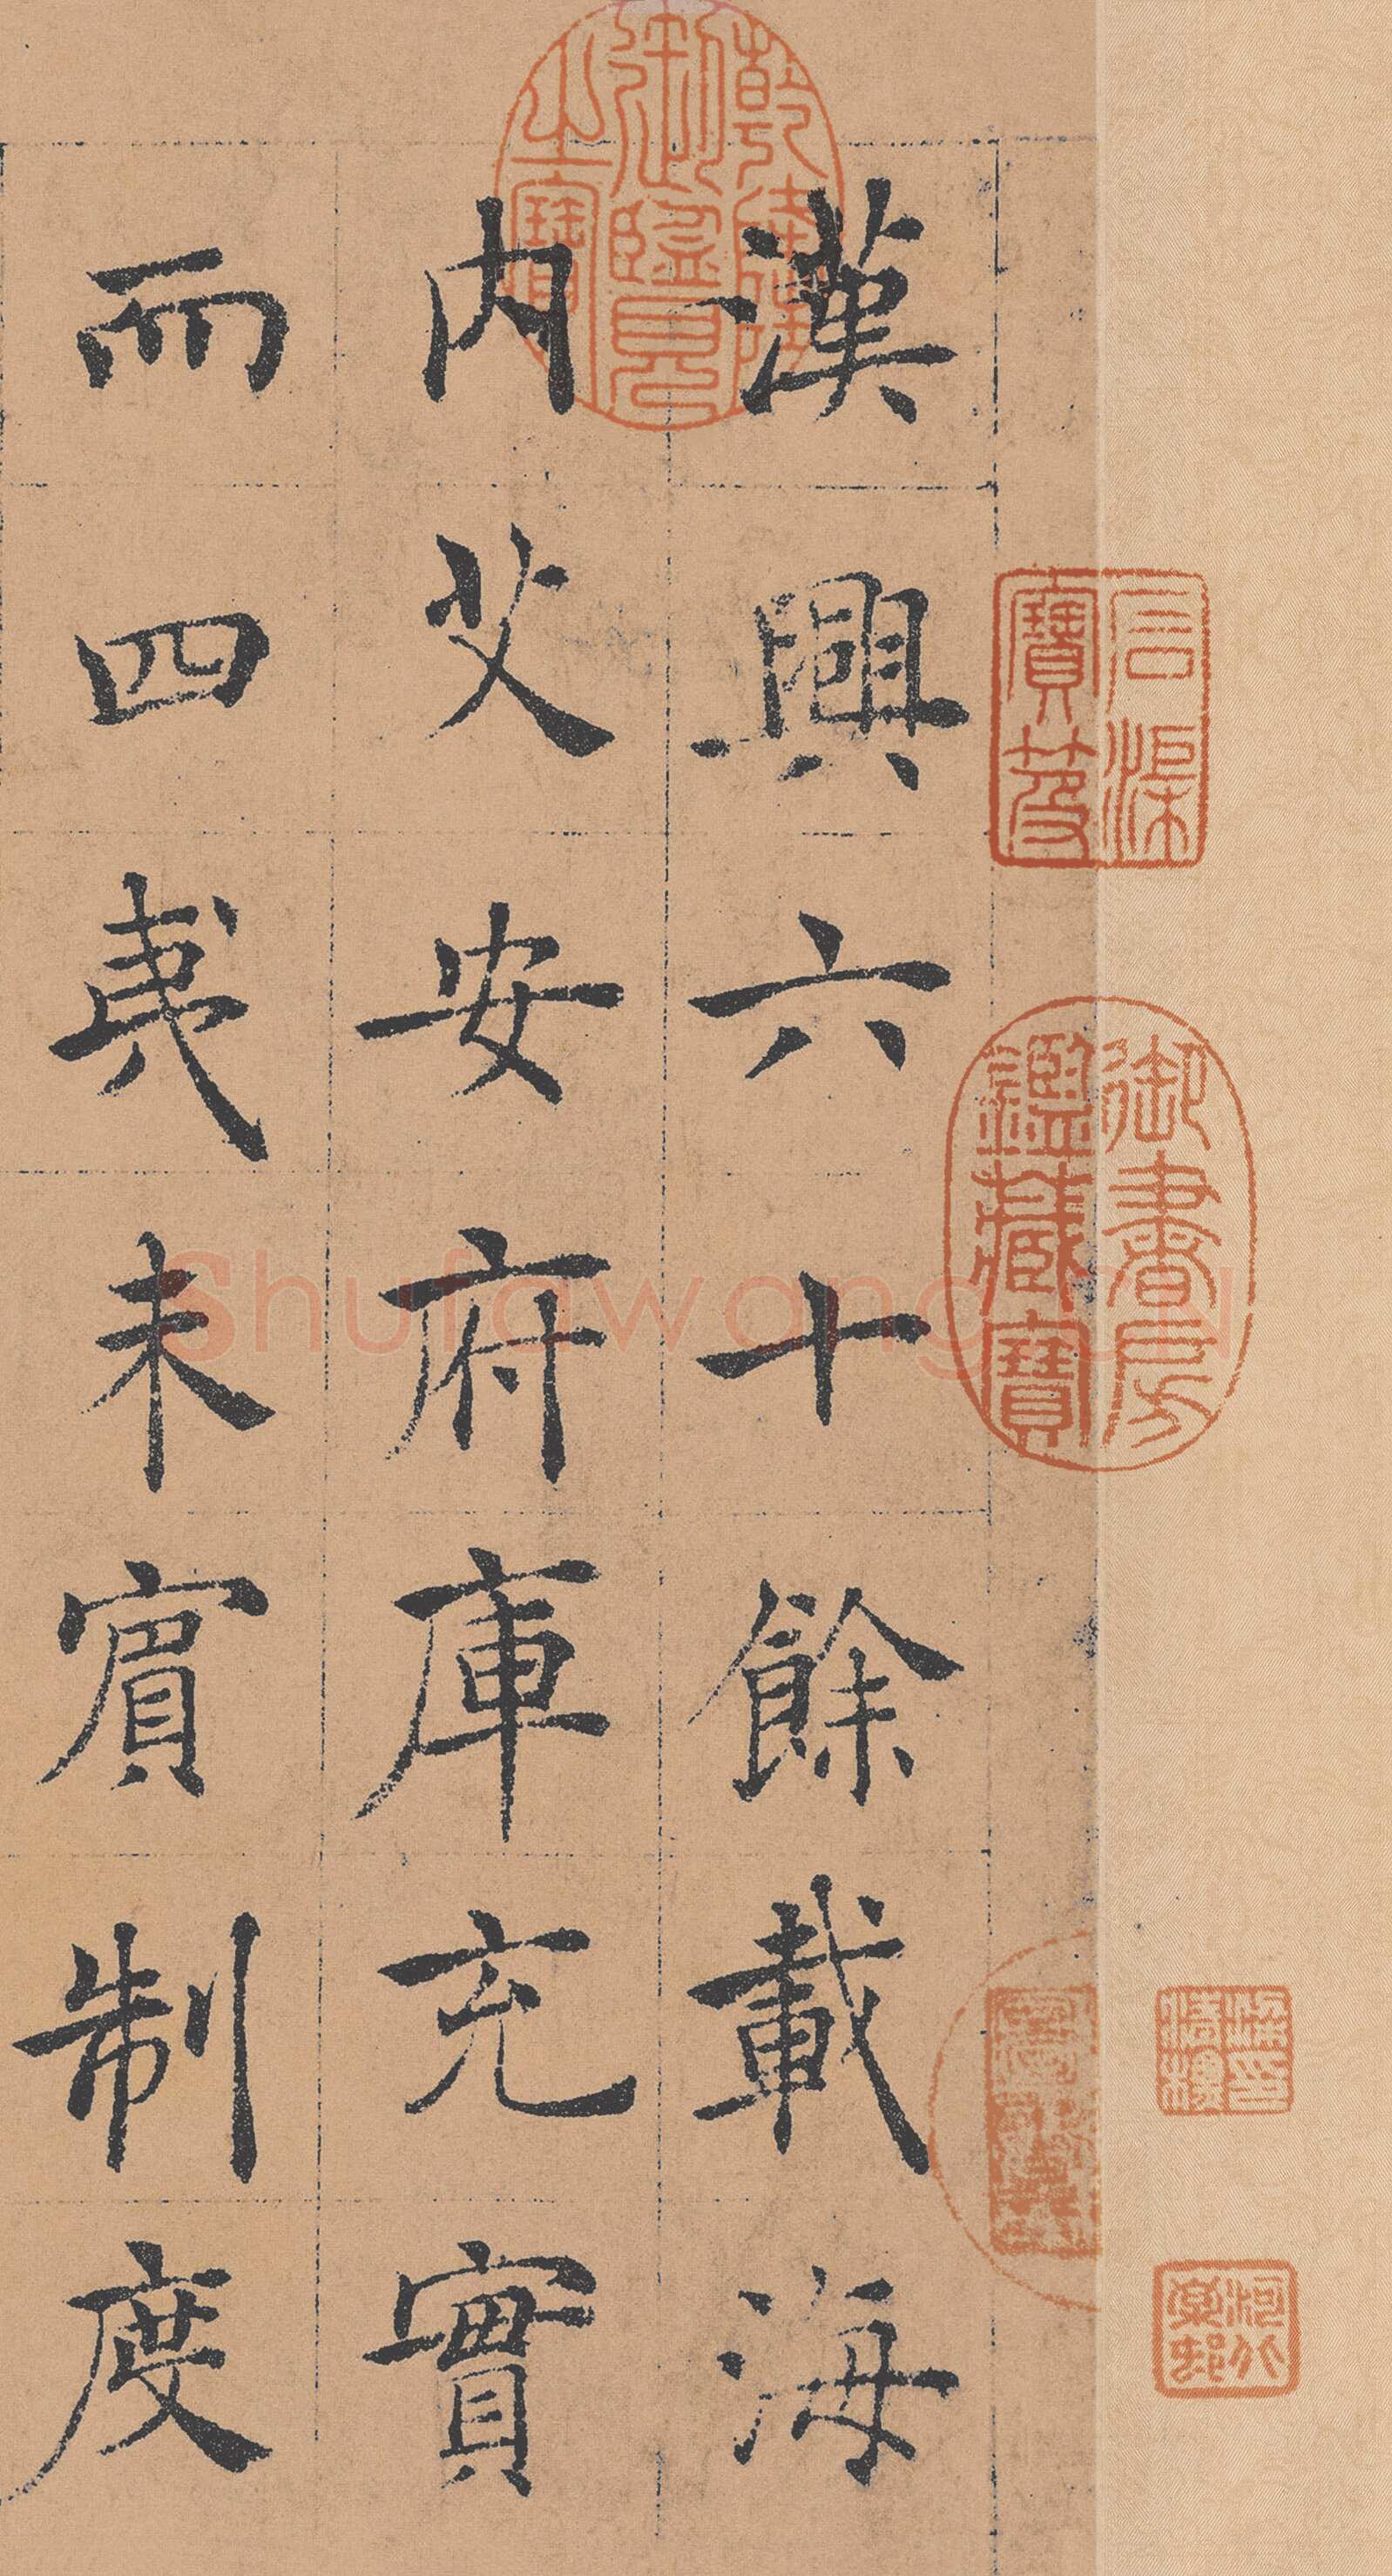 漢興六十餘載海
内艾安府庫充實
而四夷未賓制度
乾隆御覽之寶
石渠寶笈
御書房鑑藏寶
梁清標印
河北棠邨
Shufawang